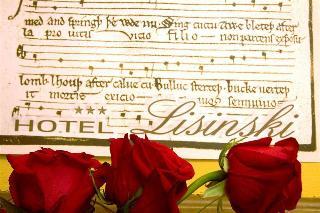 med and springþ þe wde nu. Sing cuccu awe bleteþ after
la pro vitis vicio filio non parcens exposu
lomb lhouþ after calue cu Bulluc sterteþ bucke verteþ
it mortis exicio
HOTEL Lisinski